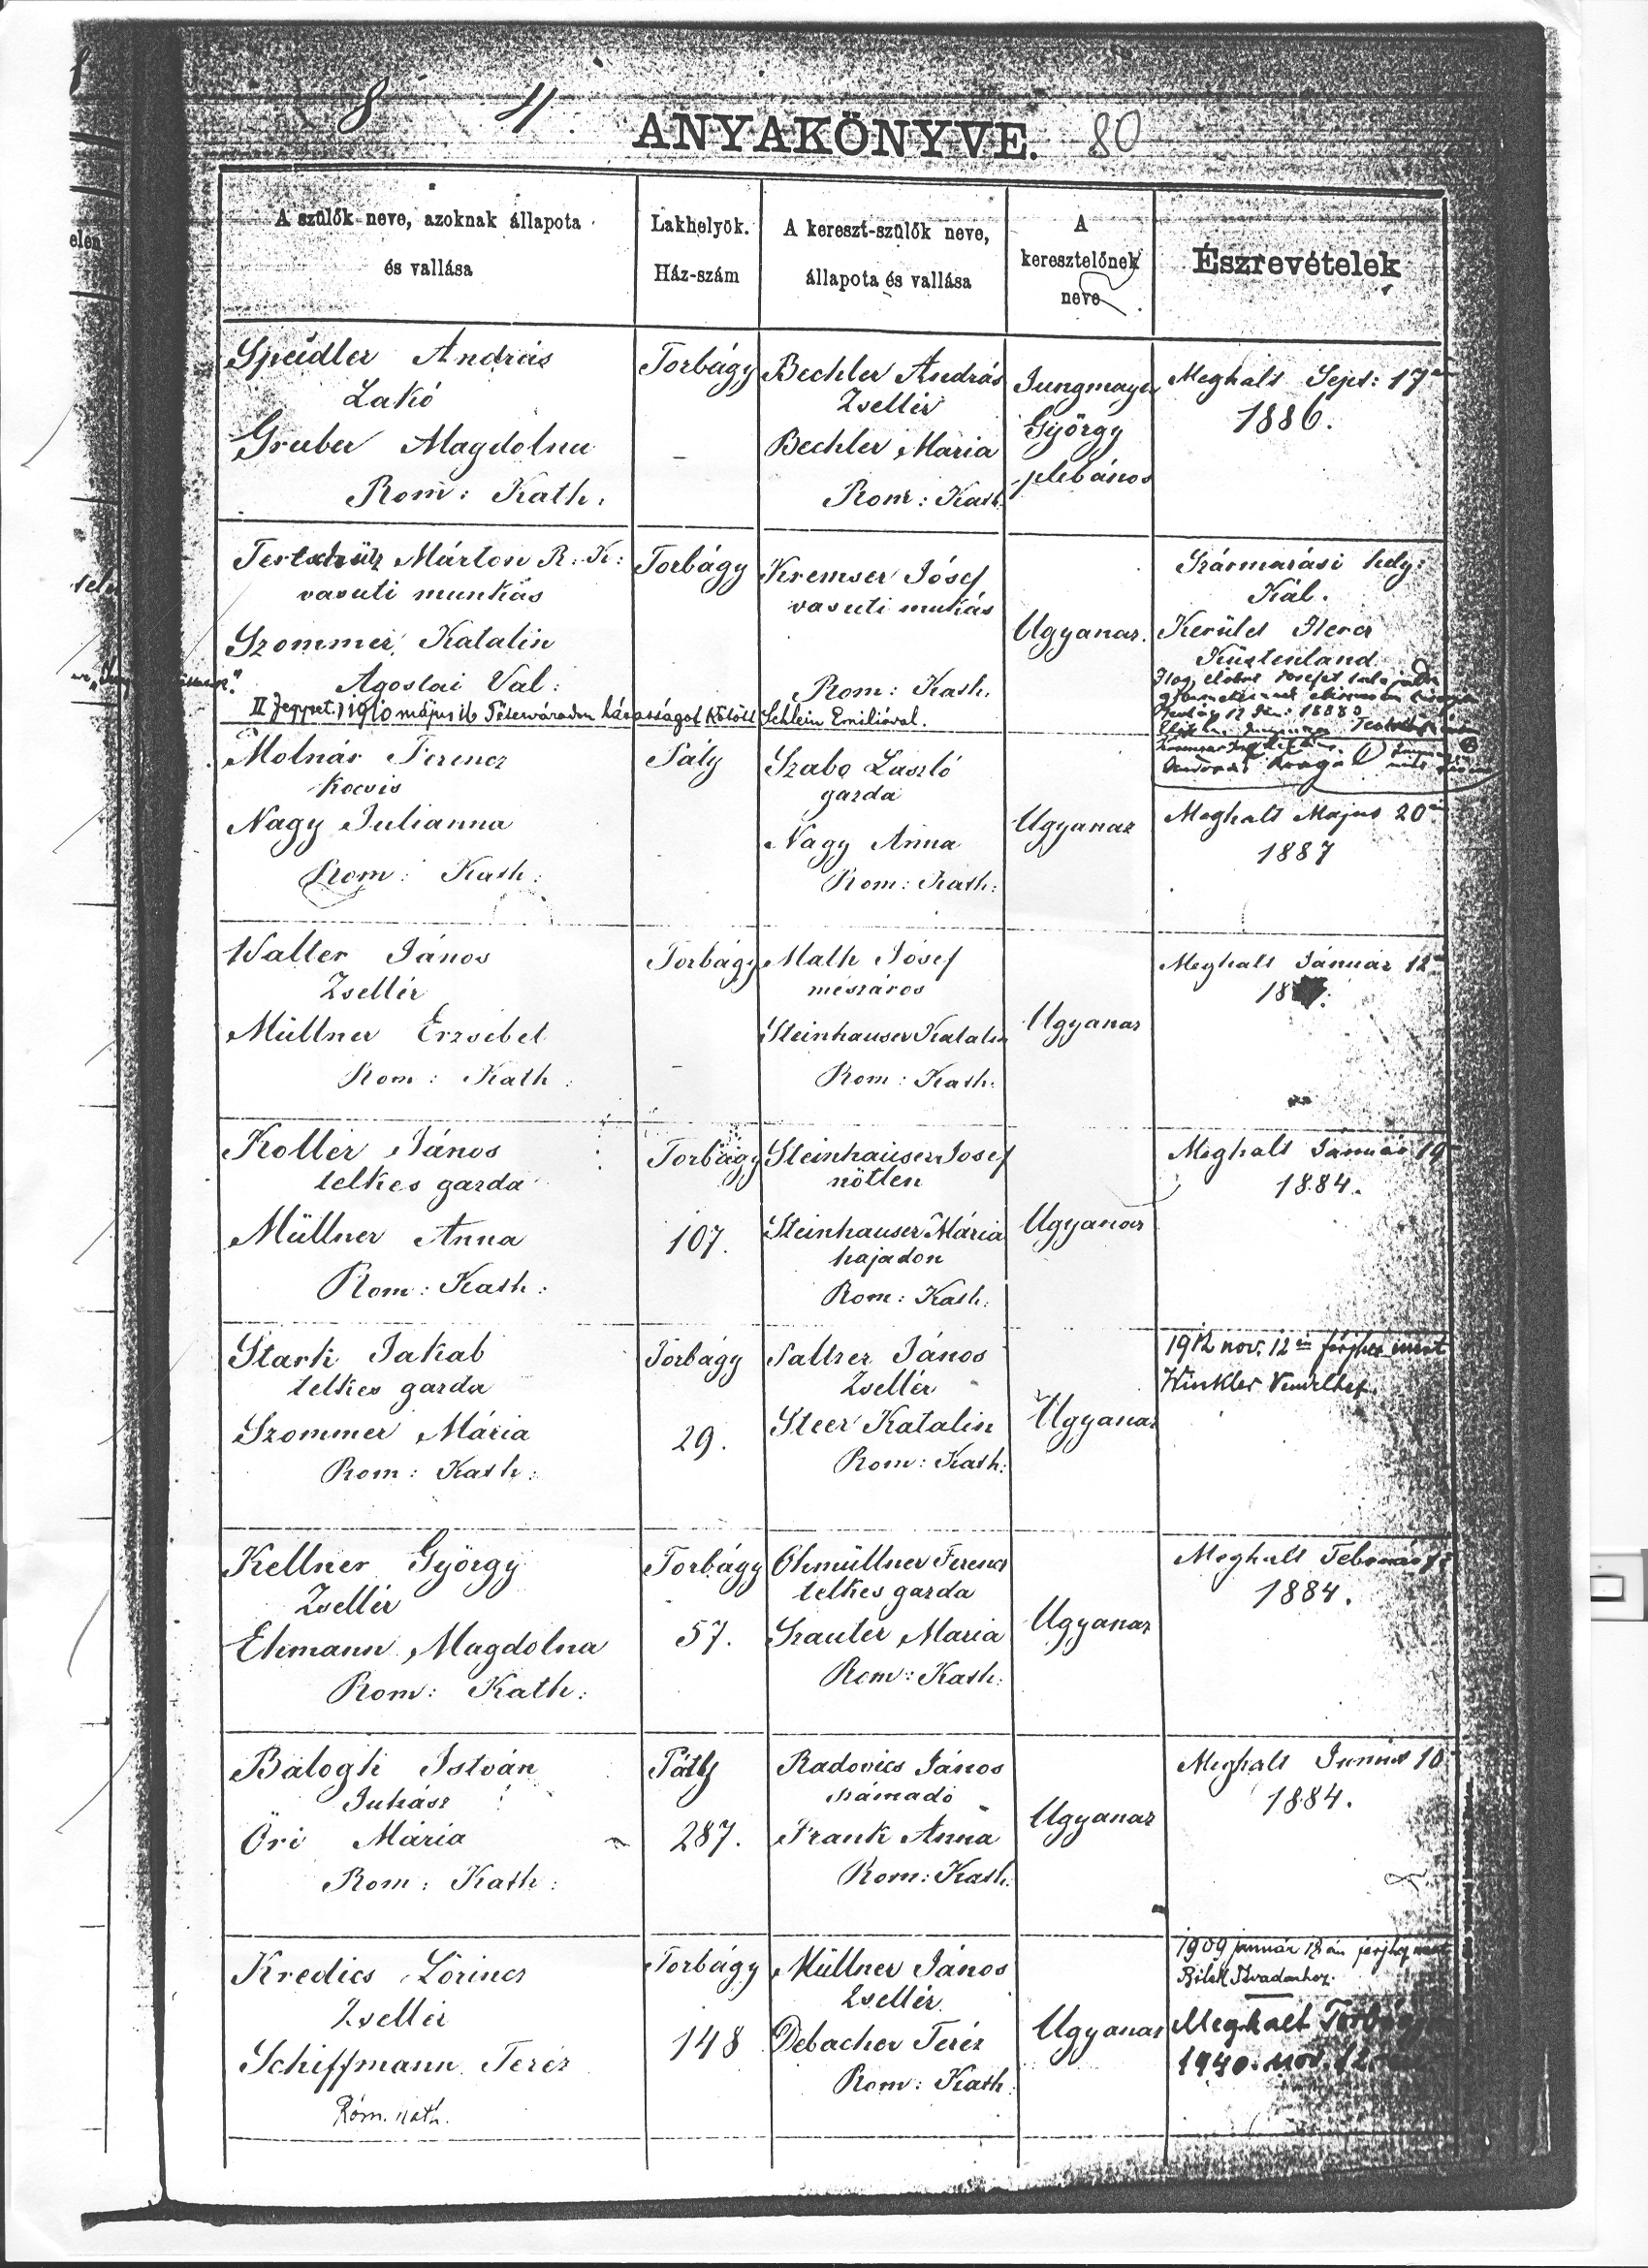 8 4
ANYAKÖNYVE. 80
A szülők neve, azoknak állapota
és vallása
Lakhelyök.
Ház-szám
A kereszt-szülők neve,
állapota és vallása
A
keresztelőnek
neve
Észrevételek
Speidler András
Lakó
Gruber Magdolna
Rom: Kath:
Torbágy
Bechler András
Zsellér
Bechler Maria
Rom: Kath.
Jungmayer
György
plebános
Meghalt Sept: 17
1886.
Márton R. K:
vasuti munkás
Szommer Katalin
Agostai Val:
Torbágy
Kremser Jósef
vasuti mukás
Rom: Kath.
Ugyanaz.
Származási hely:
Kál.
Kerület
Küstenland
II 1910 május 16 Péterváradon házasságot kötött Schlein Emiliával.
Molnár Ferencz
Kocsis
Nagy Julianna
Rom: Kath:
Páty
Szabo László
gazda
Nagy Anna
Rom: Kath:
Ugyanaz
Meghalt Majus 20
1887
Walter János
Zsellér
Müllner Erzsébet
Rom: Kath:
Torbágy
Math Jósef
mészáros
Steinhauser Katalin
Rom: Kath:
Ugyanaz
Meghalt Január 12
18
Koller János
telkes gazda
Müllner Anna
Rom: Kath:
Torbágy
107.
Steinhauser Josef
nötlen
Steinhauser Mária
hajadon
Rom: Kath.
Ugyanaz
Meghalt Január 19
1884.
Stark Jakab
telkes gazda
Szommer Mária
Rom: Kath:
Torbágy
29.
Saltzer János
Zsellér
Steer Katalin
Rom: Kath:
Ugyanaz
1912 nov. 12 én férjhez ment
Winkler Vendelhez
Kellner György
Zsellér
Ehmann Magdolna
Rom: Kath:
Torbágy
57.
Ohmüllner Ferencz
telkes gazda
Szauter Maria
Rom: Kath:
Ugyanaz
Meghalt Februar
1884.
Balogh István
Juhász
Öri Mária
Rom: Kath:
Páty
287.
Radovics János
számadó
Frank Anna
Rom: Kath.
Ugyanaz
Meghalt Junius 10
1884.
Kredics Lörincz
Zsellér
Schiffmann Teréz
Róm. kath.
Torbágy
148
Müllner János
Zsellér
Debacher Teréz
Rom: Kath:
Ugyanaz
1909 január 18 án férjhez ment
Meghalt Torbágy
1940. nov. 12